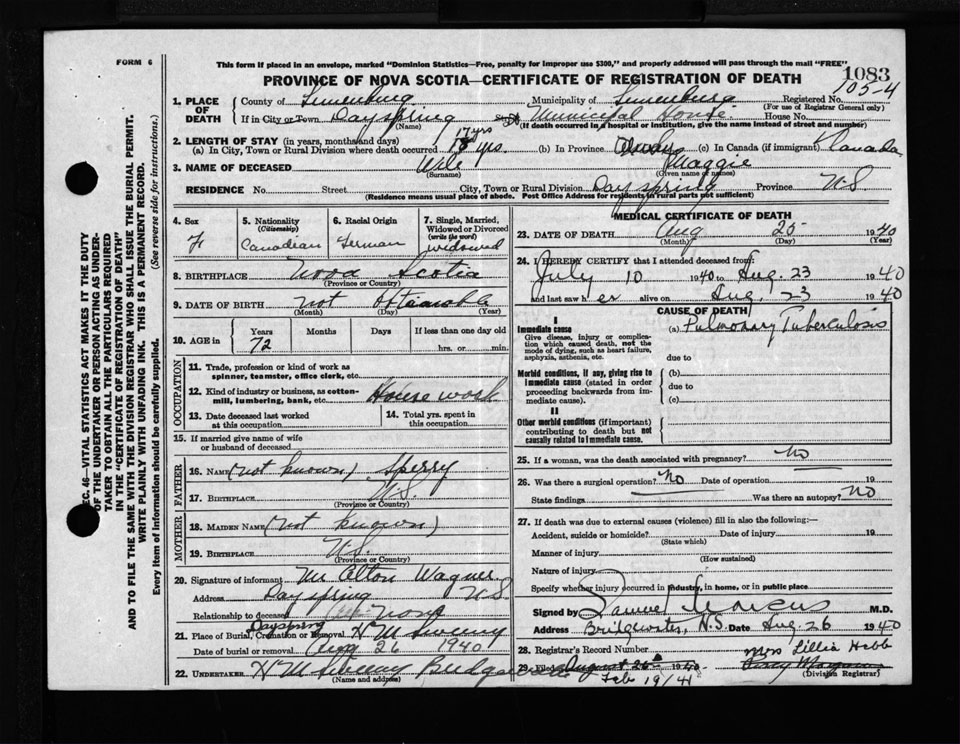 FORM 6
This form if placed in an envelope, marked "Dominion Statistics—Free, penalty for improper use $300," and properly addressed will pass through the mail "FREE"
PROVINCE OF NOVA SCOTIA—CERTIFICATE OF REGISTRATION OF DEATH
1083
105-4
1. PLACE OF DEATH County of Lunenburg Municipality of Lunenburg Registered No.
(For use of Registrar General only)
If in City or Town Dayspring Municipal House House No.
(Name) (If death occurred in a hospital or institution, give the name instead of street and number)
2. LENGTH OF STAY (in years, months and days) 17 yrs
(a) In City, Town or Rural Division where death occurred yrs. (b) In Province (c) In Canada (if immigrant) Canada
3. NAME OF DECEASED Wile Maggie
(Surname) (Given name or names)
RESIDENCE No. Street City, Town or Rural Division Dayspring Province N.S
(Residence means usual place of abode. Post Office Address for residents in rural parts not sufficient)
4. Sex F
5. Nationality (Citizenship) Canadian
6. Racial Origin German
7. Single, Married, Widowed or Divorced (write the word) widowed
8. BIRTHPLACE Nova Scotia
(Province or Country)
9. DATE OF BIRTH Not Obtainable
(Month) (Day) (Year)
10. AGE in Years Months Days If less than one day old
72 hrs. or min.
OCCUPATION
11. Trade, profession or kind of work as spinner, teamster, office clerk, etc.
12. Kind of industry or business, as cotton-mill, lumbering, bank, etc. House work
13. Date deceased last worked at this occupation
14. Total yrs. spent in this occupation
15. If married give name of wife or husband of deceased
FATHER
16. Name (not known) Sperry
17. Birthplace N.S.
(Province or Country)
MOTHER
18. Maiden Name (not known)
19. Birthplace N.S.
(Province or Country)
20. Signature of informant M Elton Wagner
Address Dayspring N.S
Relationship to deceased None
21. Place of Burial, Cremation or Removal Dayspring
Date of burial or removal Aug 26 1940
22. UNDERTAKER H M Sweeny
(Name and address)
MEDICAL CERTIFICATE OF DEATH
23. DATE OF DEATH Aug 25 1940
(Month) (Day) (Year)
24. I HEREBY CERTIFY that I attended deceased from:
July 10 1940 to Aug. 23 1940
and last saw h er alive on Aug. 23 1940
CAUSE OF DEATH
I
Immediate cause (a) Pulmonary Tuberculosis
Give disease, injury or complication which caused death, not the mode of dying, such as heart failure, asphyxia, asthenia, etc.
due to
Morbid conditions, if any, giving rise to immediate cause (stated in order proceeding backwards from immediate cause).
(b)
due to
(c)
II
Other morbid conditions (if important) contributing to death but not causally related to immediate cause.
25. If a woman, was the death associated with pregnancy? No
26. Was there a surgical operation? No Date of operation 19
State findings Was there an autopsy? No
27. If death was due to external causes (violence) fill in also the following:—
Accident, suicide or homicide? Date of injury 19
(State which)
Manner of injury
(How sustained)
Nature of injury
Specify whether injury occurred in industry, in home, or in public place
Signed by Samuel Marcus M.D.
Address Bridgewater, N.S. Date Aug. 26 1940
28. Registrar's Record Number Mrs Lillia Hebb
29. Filed August 26 1940
Feb 19/41 (Division Registrar)
SEC. 46—VITAL STATISTICS ACT MAKES IT THE DUTY
OF THE UNDERTAKER OR PERSON ACTING AS UNDER-
TAKER TO OBTAIN ALL THE PARTICULARS REQUIRED
IN THE "CERTIFICATE OF REGISTRATION OF DEATH"
AND TO FILE THE SAME WITH THE DIVISION REGISTRAR WHO SHALL ISSUE THE BURIAL PERMIT.
WRITE PLAINLY WITH UNFADING INK. THIS IS A PERMANENT RECORD.
Every item of Information should be carefully supplied. (See reverse side for instructions.)